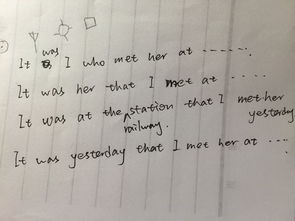 was
It is I who met her at ------.
It was her that I met at .....
It was at the station that I met her
railway. yesterday
It was yesterday that I met her at ....